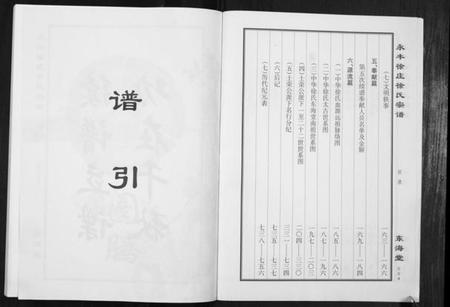 谱引
永丰徐庄徐氏宗谱
目录
东海堂
(七)文明轶事 一六三—一六六
五、奉献篇
第五次续谱奉献人员名单及金额 一六九—一八四
六、源流篇
(一)中华徐氏血源远祖脉络图 一八五—一八六
(二)中华徐氏太古世系图 一八七—一九六
(三)中华徐氏东海堂南祖世系图 一九七—二〇三
(四)士荣公派下一至二十二世世系图 二〇四—三三〇
(五)士荣公派下名行分纪 三三一—七三四
(六)后记 七三五—七三七
(七)历代纪元表 七三八—七五六